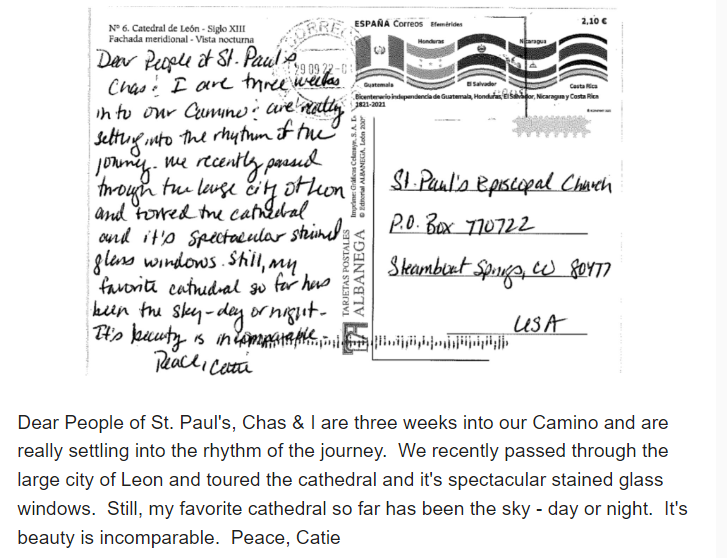 Nº 6. Catedral de León - Siglo XIII
Fachada meridional - Vista nocturna
Dear People of St. Paul's
Chas & I are three weeks
into our Camino & are really
settling into the rhythm of the
journey. We recently passed
through the large city of Leon
and toured the cathedral
and it's spectacular stained
glass windows. Still, my
favorite cathedral so far has
been the sky - day or night -
It's beauty is incomparable.
Peace, Catie
CORREOS
29 09 22
ESPAÑA Correos Efemérides
2,10 €
Honduras
Nicaragua
Guatemala
El Salvador
Costa Rica
Bicentenario independencia de Guatemala, Honduras, El Salvador, Nicaragua y Costa Rica
1821-2021
TARJETAS POSTALES
ALBANEGA
St. Paul's Episcopal Church
P.O. Box 770722
Steamboat Springs, CO 80477
USA
Dear People of St. Paul's, Chas & I are three weeks into our Camino and are
really settling into the rhythm of the journey.  We recently passed through the
large city of Leon and toured the cathedral and it's spectacular stained glass
windows.  Still, my favorite cathedral so far has been the sky - day or night.  It's
beauty is incomparable.  Peace, Catie